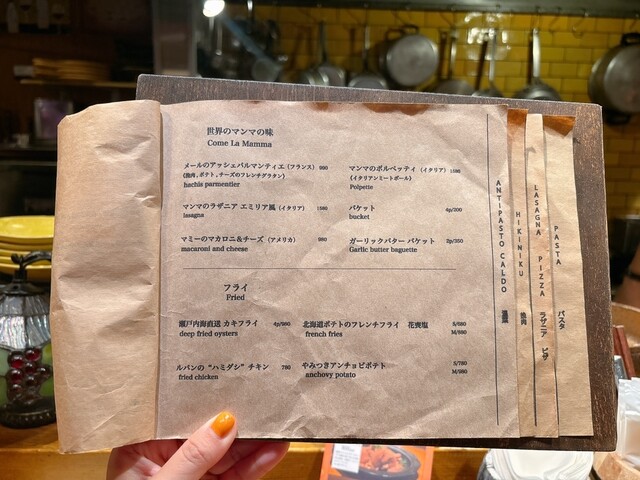 世界のマンマの味
Come La Mamma
メールのアッシェパルマンティエ（フランス） 980
（挽肉,ポテト,チーズのフレンチグラタン）
hachis parmentier
マンマのポルペッティ（イタリア） 1180
（イタリアンミートボール）
Polpette
マンマのラザニア エミリア風（イタリア） 1380
lasagna
バケット 4p/200
bucket
マミーのマカロニ&チーズ（アメリカ） 980
macaroni and cheese
ガーリックバター バケット 2p/350
Garlic butter baguette
フライ
Fried
瀬戸内海直送 カキフライ 4p/980
deep fried oysters
北海道ポテトのフレンチフライ 花藻塩 S/680
french fries M/880
ルパンの"ハミダシ"チキン 780
fried chicken
やみつきアンチョビポテト S/780
anchovy potato M/980
ANTIPASTO CALDO
HIKINIKU 挽肉
LASAGNA PIZZA ラザニア ピザ
PASTA パスタ